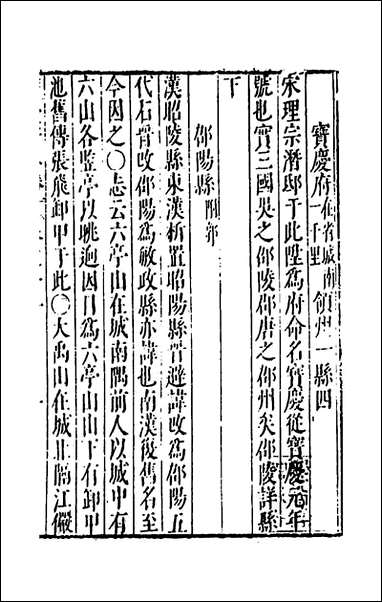 寶慶府在省城南一千里領州一縣四
宋理宗潛邸于此陞為府命名寶慶從寶慶元年
號也實三國吳之邵陵郡唐之邵州矣邵陵詳縣
下
邵陽縣附郭
漢昭陵縣東漢析置昭陽縣晉避諱改為邵陽五
代石晉改邵陽為敏政縣亦諱也南漢復舊名至
今因之〇志云六亭山在城南隅前人以城中有
六山各竪亭以眺迥因目為六亭山山下有卸甲
池舊傳張飛卸甲于此〇大禹山在城北臨江儼